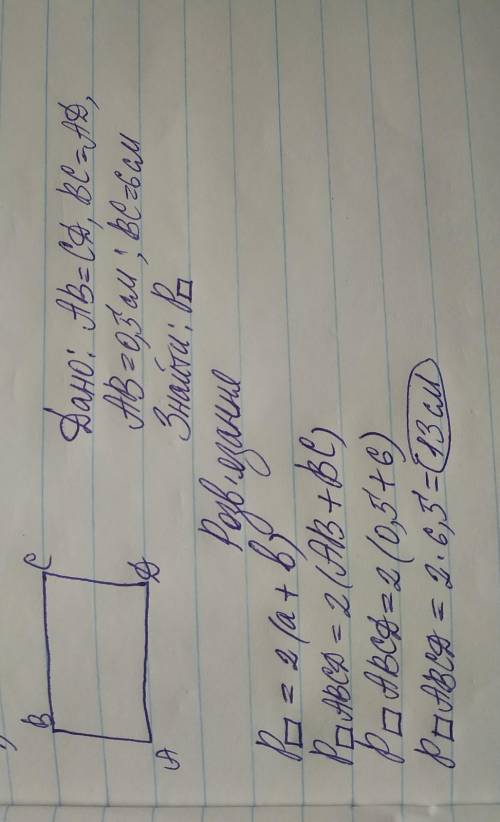 B C
A D
Дано: AB=CD, BC=AD,
AB=0,5 см; BC=6 см
Знайти: P□
Розв'язання
P□ = 2(a+b)
P□ABCD = 2(AB+BC)
P□ABCD = 2(0,5+6)
P□ABCD = 2·6,5 = 13 см